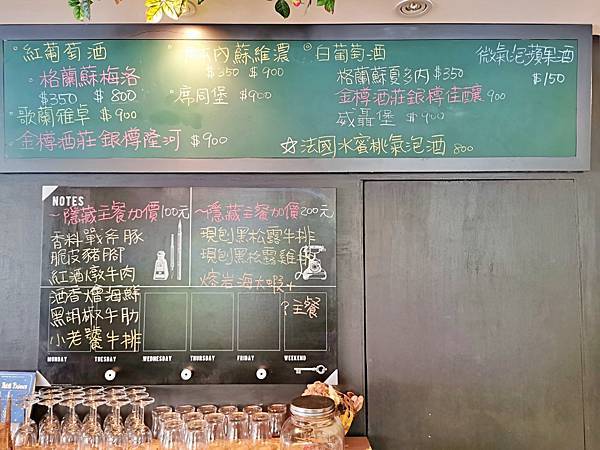 紅葡萄酒
格蘭蘇梅洛
$350 $800
歌蘭雅卓 $900
金樽酒莊銀樽隆河 $900
內蘇維濃
$350 $900
席同堡 $900
白葡萄酒
格蘭蘇夏多內 $350
金樽酒莊銀樽佳釀 900
威聶堡 $900
☆法國水蜜桃氣泡酒 800
微氣泡蘋果酒
$150
NOTES
~隱藏主餐加價100元
香料戰斧豚
脆皮豬腳
紅酒燉牛肉
酒香燴海鮮
黑胡椒牛肋
小老饕牛排
~隱藏主餐加價200元
現刨黑松露牛排
現刨黑松露雞
熔岩海大蝦+
?主餐
MONDAY TUESDAY WEDNESDAY THURSDAY FRIDAY WEEKEND